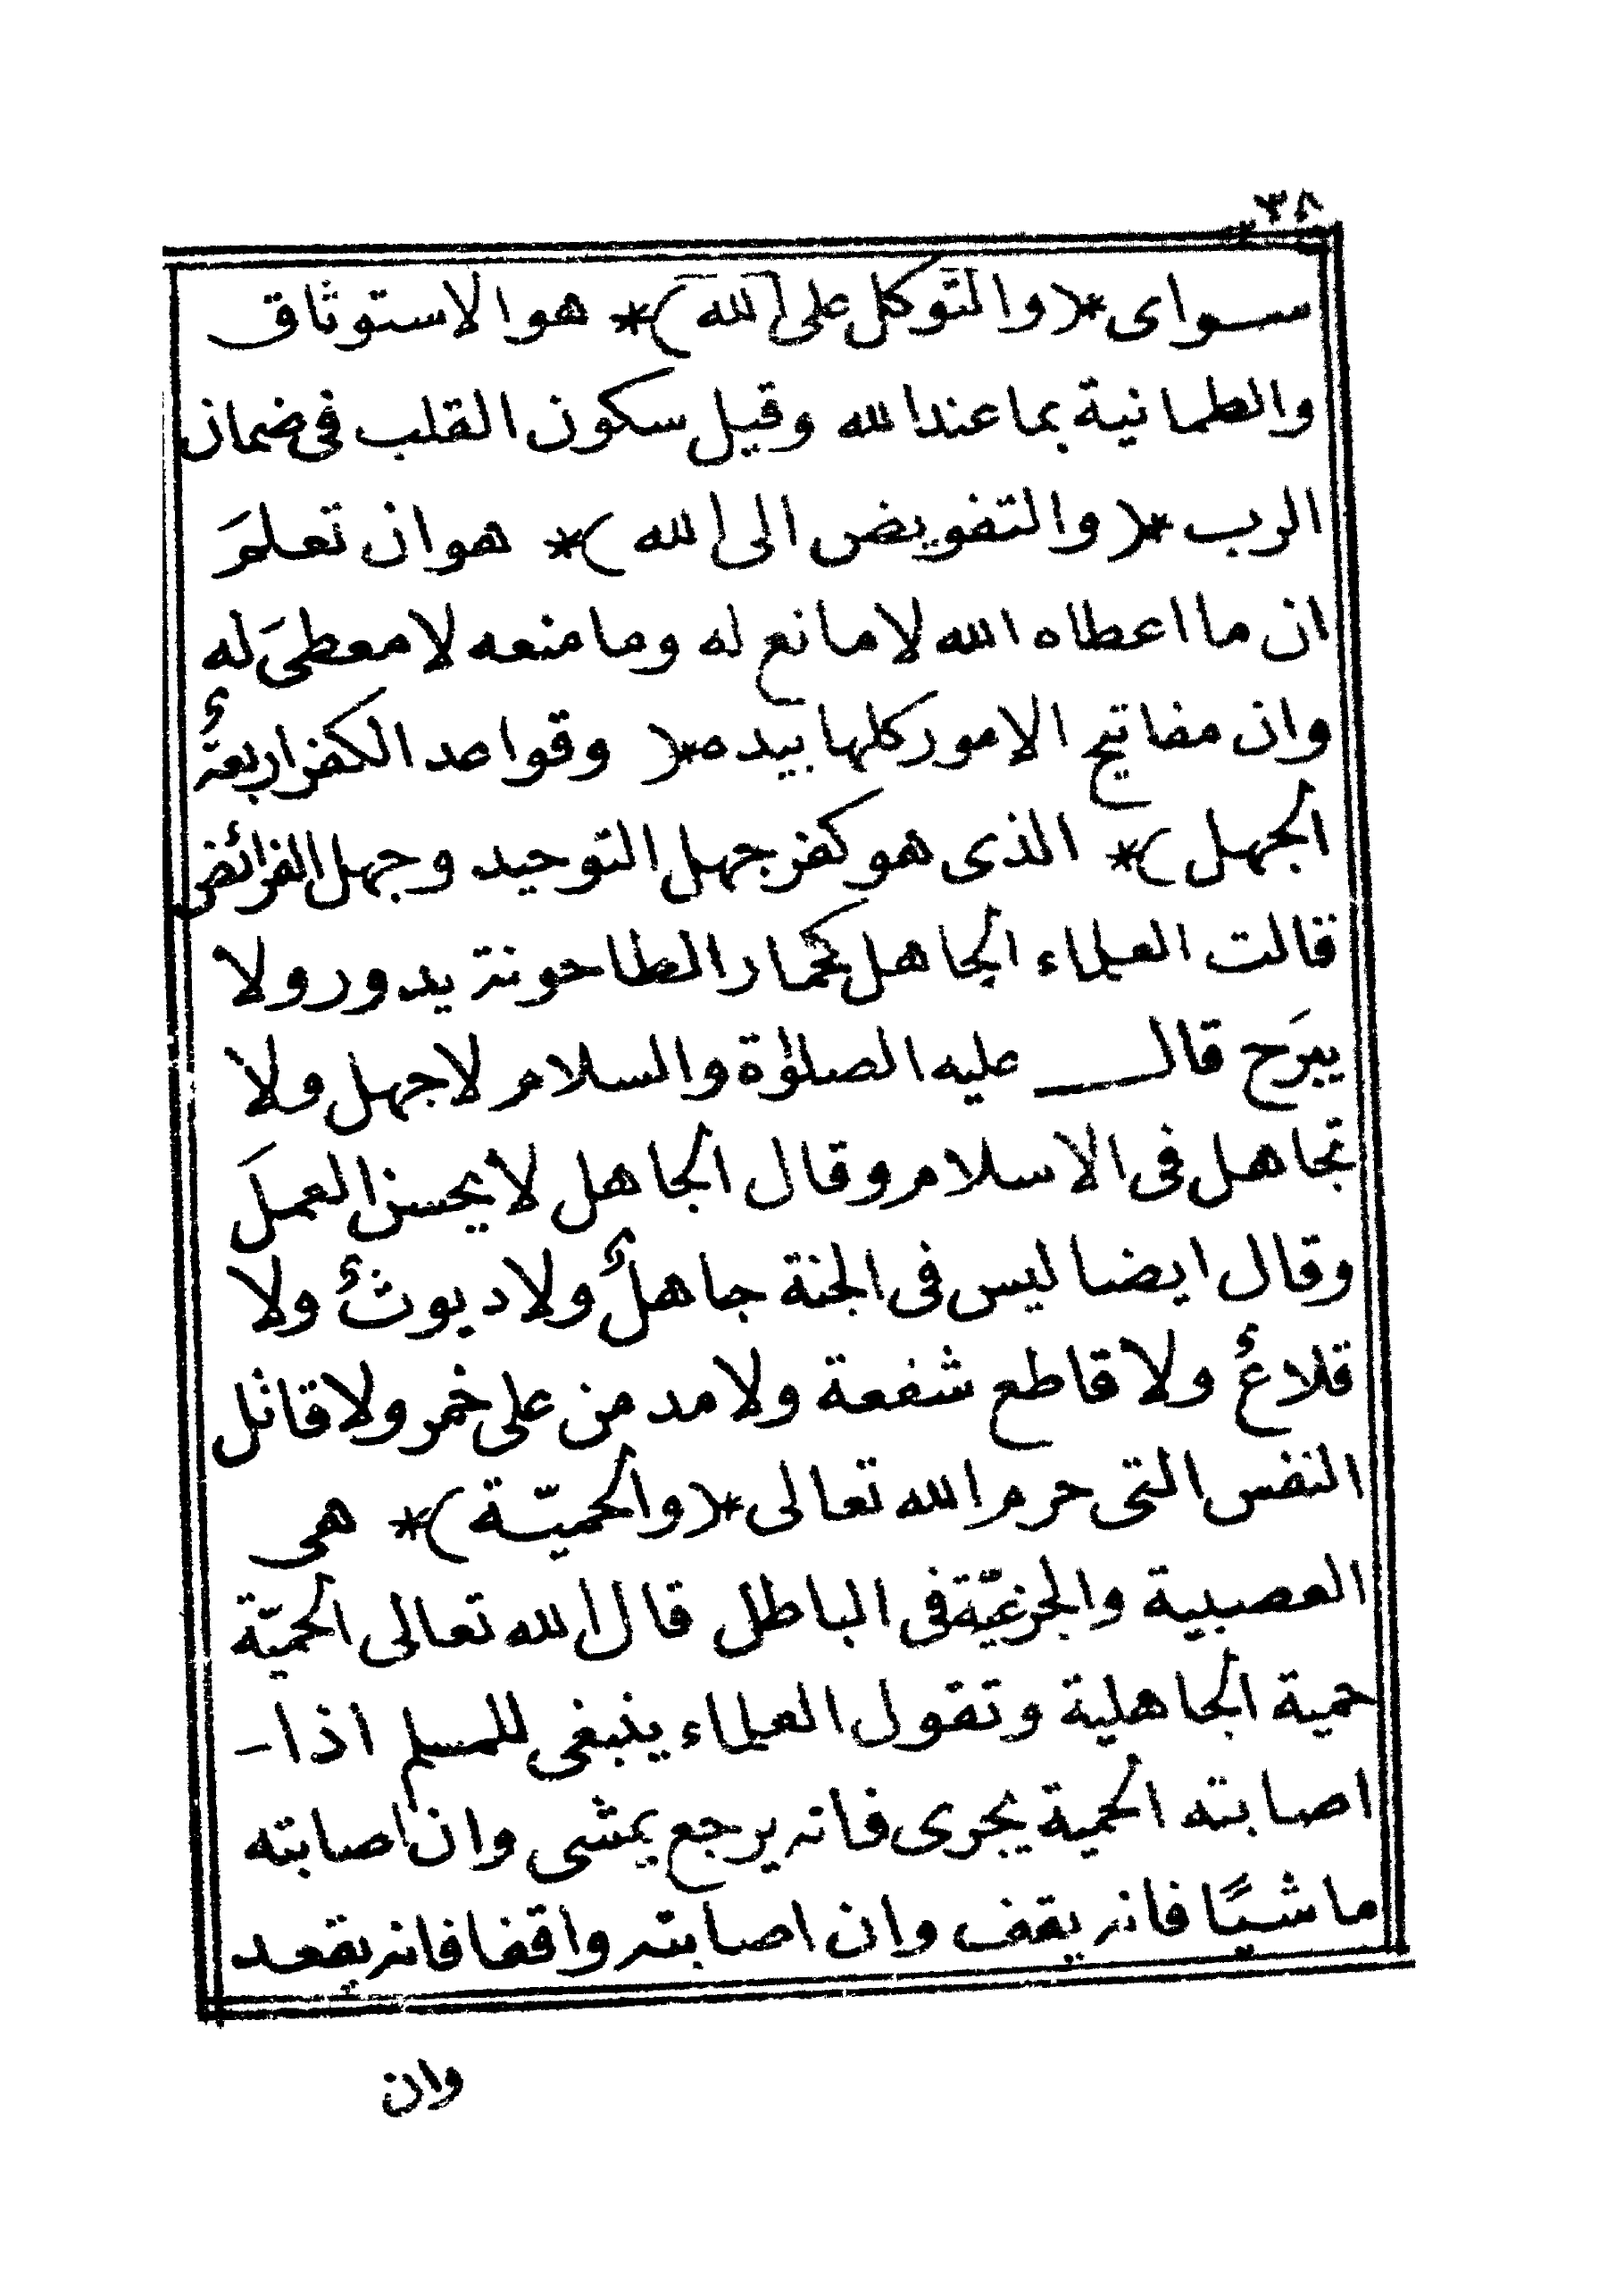 ٣٨
سواى *( والتّوكل على الله )* هوالاستوثاق
والطمانية بما عندالله وقيل سكون القلب فى ضمان
الرب *( والتفويض الى الله )* هوان تعلمَ
ان ما اعطاه الله لا مانع له وما منعه لا معطىَ له
وان مفاتيح الاموركلها بيده *( وقواعد الكفراربعةٌ
الجهل )* الذى هو كفرجهل التوحيد وجهل الفرائض
قالت العلماء الجاهل كحمار الطاحونة يدور ولا
يبرَح قال عليه الصلوٰة والسلام لاجهل ولا
تجاهل فى الاسلام وقال الجاهل لا يحسن العملَ
وقال ايضا ليس فى الجنة جاهلٌ ولاديوثٌ ولا
قلاعٌ ولا قاطع شفعة ولا مد من على خمر ولا قاتل
النفس التى حرم الله تعالى *( والحميّة )* هى
العصبية والجرغيّة فى الباطل قال الله تعالى الحميّة
حمية الجاهلية وتقول العلماء ينبغى للمسلم اذا-
اصابته الحمية يجرى فانه يرجع يمشى وان اصابته
ماشيًا فانه يقف وان اصابته واقفا فانه يقعد
وان